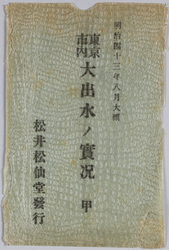 明治四十三年八月大洪
東京市内大出水ノ實况 甲
松井松仙堂發行